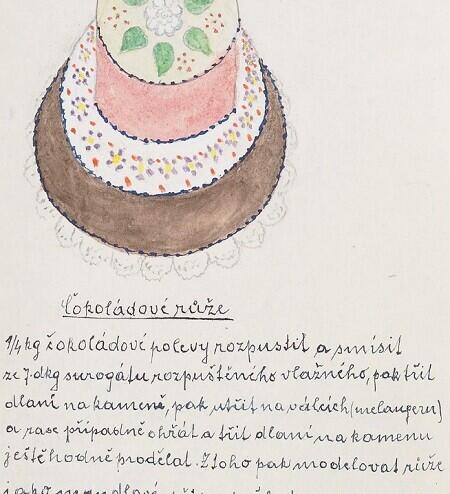 Čokoládové růže
1/4 kg žokoládové polevy rozpustit a smísit
ze 7.dkg surogátu rozpuštěného vlažného, pak třít
dlaní na kameně, pak utřít na válcích (melangeru)
a zase případně ohřát a třít dlaní na kamenu
ještě hodně prodělat. Z toho pak modelovat růže
jako mandlové